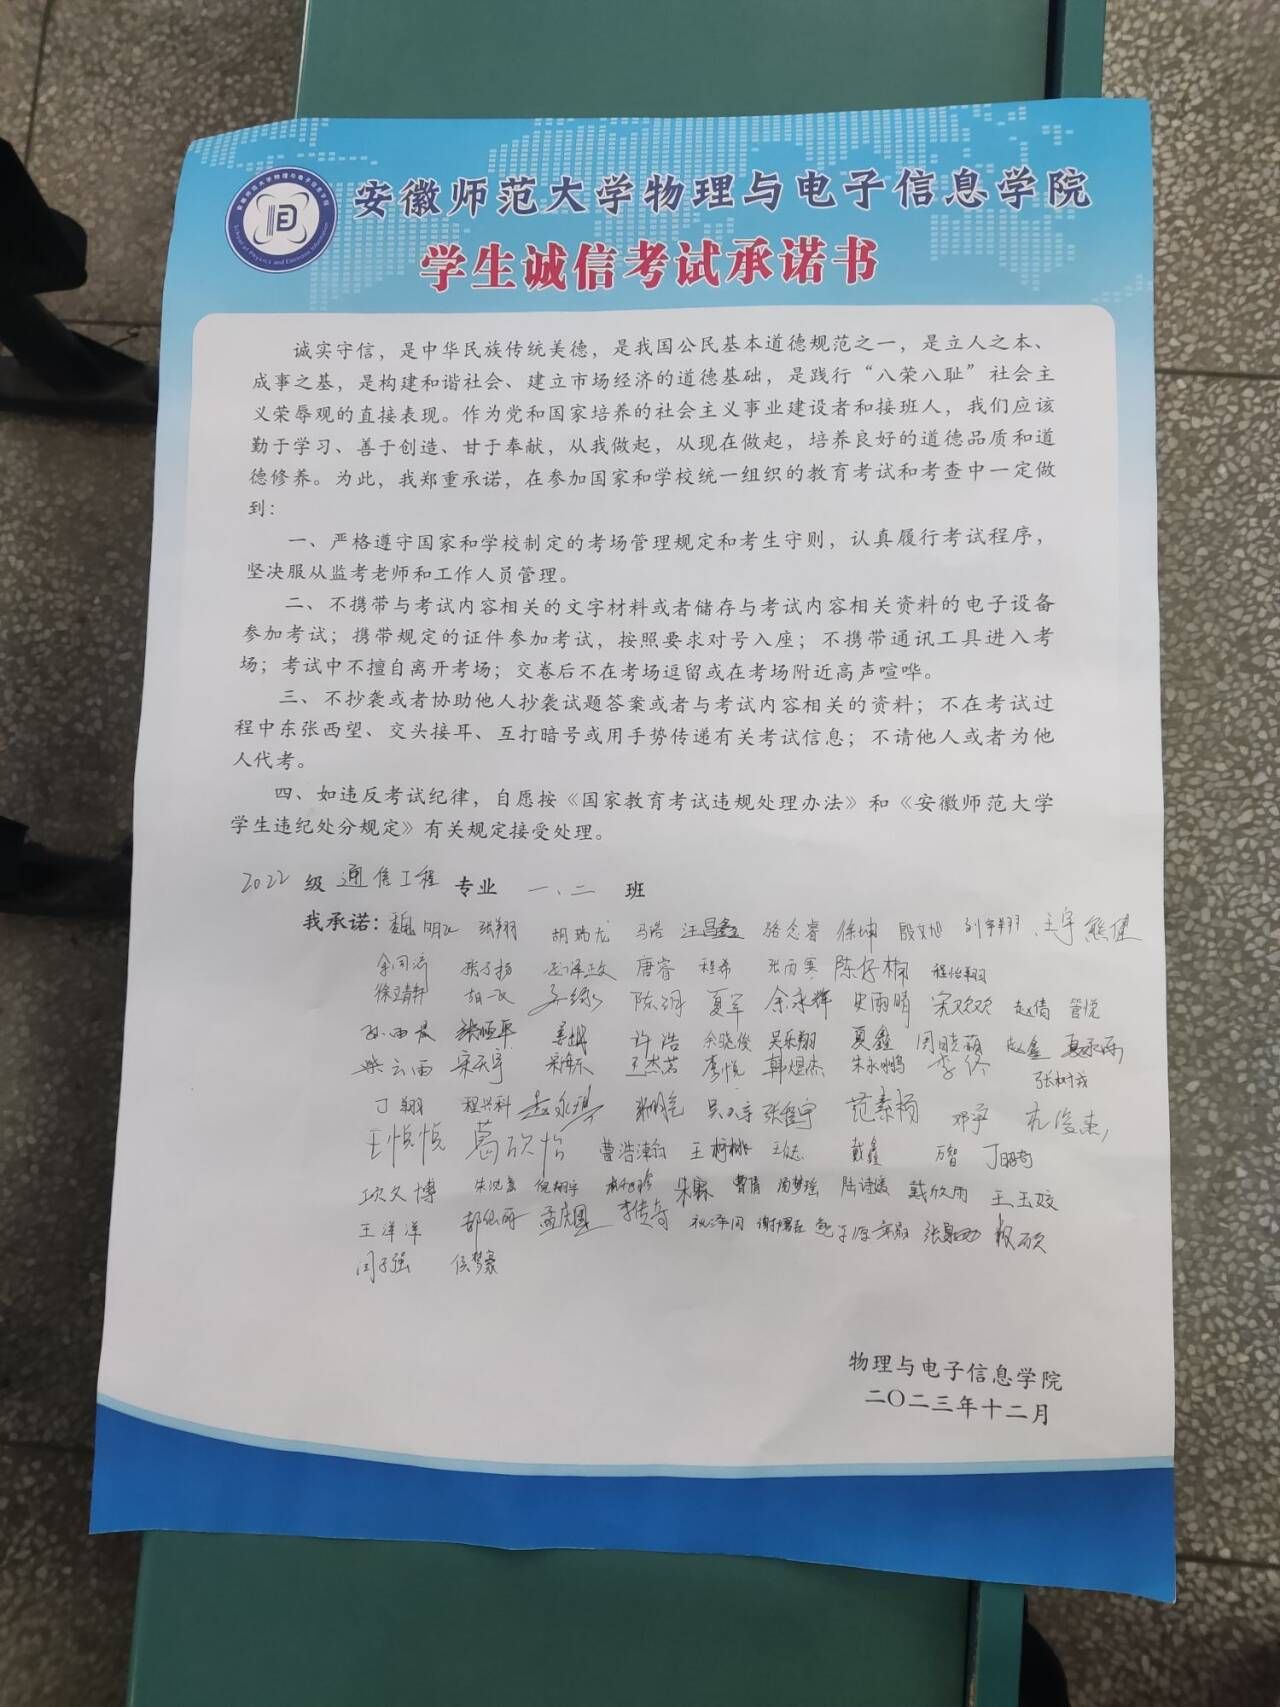 安徽师范大学物理与电子信息学院
学生诚信考试承诺书
诚实守信，是中华民族传统美德，是我国公民基本道德规范之一，是立人之本、
成事之基，是构建和谐社会、建立市场经济的道德基础，是践行“八荣八耻”社会主
义荣辱观的直接表现。作为党和国家培养的社会主义事业建设者和接班人，我们应该
勤于学习、善于创造、甘于奉献，从我做起，从现在做起，培养良好的道德品质和道
德修养。为此，我郑重承诺，在参加国家和学校统一组织的教育考试和考查中一定做
到：
一、严格遵守国家和学校制定的考场管理规定和考生守则，认真履行考试程序，
坚决服从监考老师和工作人员管理。
二、不携带与考试内容相关的文字材料或者储存与考试内容相关资料的电子设备
参加考试；携带规定的证件参加考试，按照要求对号入座；不携带通讯工具进入考
场；考试中不擅自离开考场；交卷后不在考场逗留或在考场附近高声喧哗。
三、不抄袭或者协助他人抄袭试题答案或者与考试内容相关的资料；不在考试过
程中东张西望、交头接耳、互打暗号或用手势传递有关考试信息；不请他人或者为他
人代考。
四、如违反考试纪律，自愿按《国家教育考试违规处理办法》和《安徽师范大学
学生违纪处分规定》有关规定接受处理。
2022 级 通信工程 专业 一、二 班
我承诺： 张翔 胡瑞龙 马浩 汪昌鑫 骆念睿 徐坤 殷文旭 刘宇翔 王宇 熊健
张子扬 唐睿 程希 张雨寒 陈仔楠 程怡翔
胡一民 夏军 余永辉 史雨晴 宋欢欢 赵倩 管悦
许浩 余晓俊 吴乐翔 夏鑫 闫晓萌 赵鑫
宋天宇 王杰若 李悦 韩煜杰 朱永鹏 张树成
丁翔 程兴科 范泰杨
王悦悦 葛欣怡 曹浩瀚 戴鑫 万智
曹倩 周梦瑶 陆诗媛 戴欣雨 王玉姣
王洋洋 李传奇
闫子强 侯梦豪
物理与电子信息学院
二〇二三年十二月